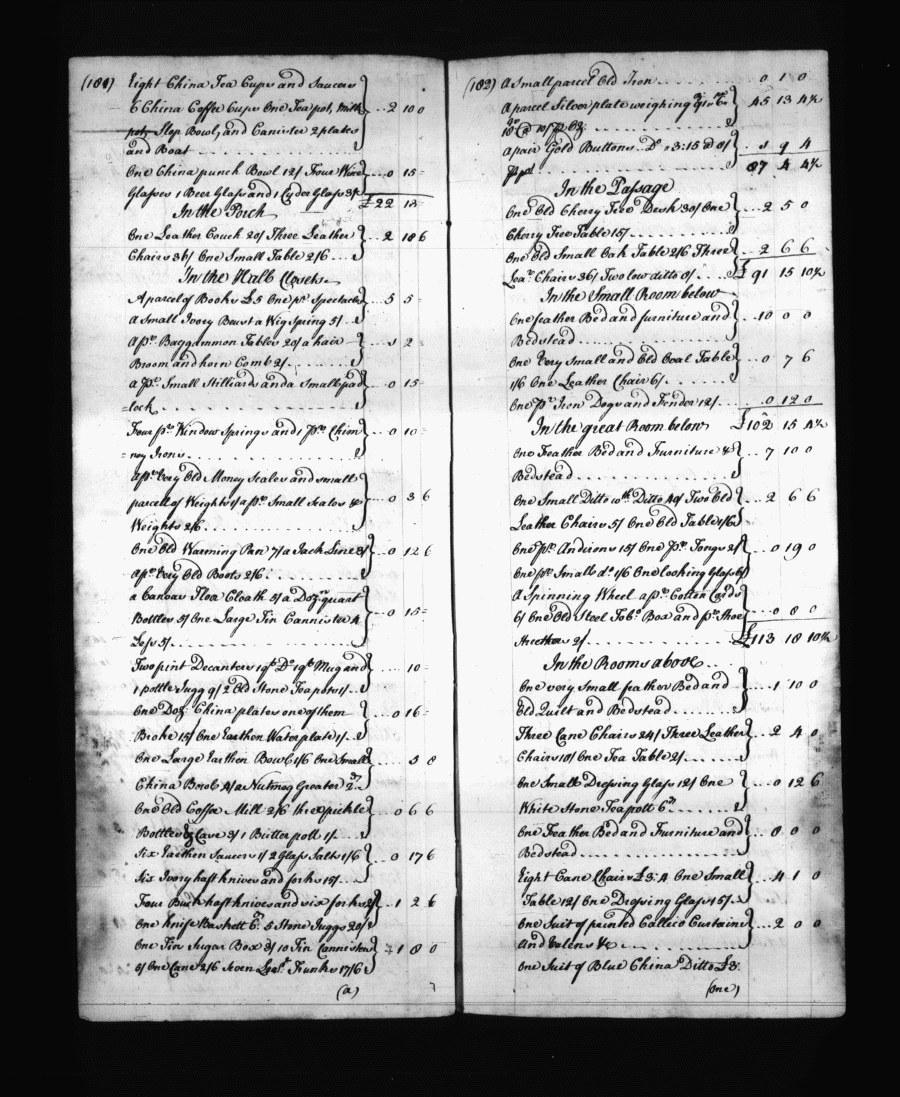 (181) Eight China Tea Cups and Saucers
6 China Coffe Cups One Teapot, Milk ...2 10 0
pot, Slop Bowl, and Canister 2 plates
and Boat
One China punch Bowl 12/ Four Wine ...0 15 =
Glasses 1 Beer Glass and 1 Cyder Glass 3/
In the Porch £22 13
One Leather Couch 20/ Three Leather ...2 18 6
Chairs 36/ One Small Table 2/6
In the Hall Closets
A parcel of Books £5 One pr. Spectacles ...5 5 =
a Small Ivory Brush a Wig Spring 5/
a pr. Baggammon Tables 20/ a hair ...1 2 =
Broom and horn Comb 2/
a pr. Small Stilliards and a Small pad ...0 15 =
=lock
Four pr. Window Springs and 1 pr. Chim ...0 10 =
=ney Irons
A pr. Very Old Money Scales and small
parcell of Weights 1/ a pr. Small Scales & ...0 3 6
Weights 2/6
One Old Warming Pan 7/ a Jack Line 3/ ...0 12 6
a pr. Very Old Boots 2/6
a Canvas Floa Cloath 5/ a Dozn. quart
Bottles 5/ One Large Tin Cannister & ...0 15 =
Less 5/
Two pint Decanters 1 qt. Do. 1 qt. Mug and ... 10 =
1 pottle Jugg 9/ 2 Old Stone Teapots 1/
One Doz. China plates one of them ...0 16 =
Broke 15/ One Earthen Water plate 1/
One Large Earthen Bowl 1/6 One Small ... 5 8
China Bowl 4/ a Nutmeg Greater 2d
One Old Coffe Mill 2/6 three pickle ...0 6 6
Bottles & Case 3/ 1 Butter pott 1/
Six Earthen Saucers 1/ 2 Glass Salts 1/6 ...0 17 6
Six Ivory haft knives and forks 15/
Four Buck haft knives and six forks 2/ ...1 2 6
One Knife Baskett 6d. 5 Stone Juggs 20/
One Tin Sugar Box 3/ 10 Tin Cannisters 1 8 0
5/ One Cane 2/6 Seven Lear. Trunks 17/6
(a)
(182) a Small parcel Old Iron 0 1 0
A parcel Silver plate weighing ...45 13 4½
a pair Gold Buttons Do. £3:15 ... 9 4
87 4 4½
In the Passage
One Old Cherry Tree Desk 30/ One ...2 5 0
Cherry Tree Table 15/
One Old Small Oak Table 2/6 Three ...2 6 6
Lear. Chairs 36/ Two low ditto 8/ £91 15 10½
In the Small Room below
One feather Bed and furniture and ...10 0 0
Bedstead
One Very Small and Old Oval Table ...0 7 6
1/6 One Leather Chair 6/
One pr. Iron Dogs and Fender 12/ ...0 12 0
In the great Room below £102 15 4½
One Feather Bed and Furniture & ...7 10 0
Bedstead
One Small Ditto wth. Ditto 40/ Two Old ...2 6 6
Leather Chairs 5/ One Old Table 1/6
One pr. Andirons 15/ One pr. Tongs 2/ ...0 19 0
One pr. Small do. 1/6 One looking Glass 6/
A Spinning Wheel a pr. Cotten Cards
6/ One Old Steel Tobo. Box and pr. Shoe ...0 8 0
2/ £113 18 10½
In the Rooms above
One very small feather Bed and ...1 10 0
Old Quilt and Bedstead
Three Cane Chairs 24/ Three Leather ...2 4 0
Chairs 18/ One Tea Table 2/
One Small Dressing Glass 12/ One ...0 12 6
White Stone Teapott 6d.
One Feather Bed and Furniture and ...8 0 0
Bedstead
Eight Cane Chairs £3:4 One Small ...4 1 0
Table 12/ One Dressing Glass 15/
One Suit of printed Callico Curtains ...2 0 0
and Valens &c
One Suit of Blue China Ditto £3.
(one)